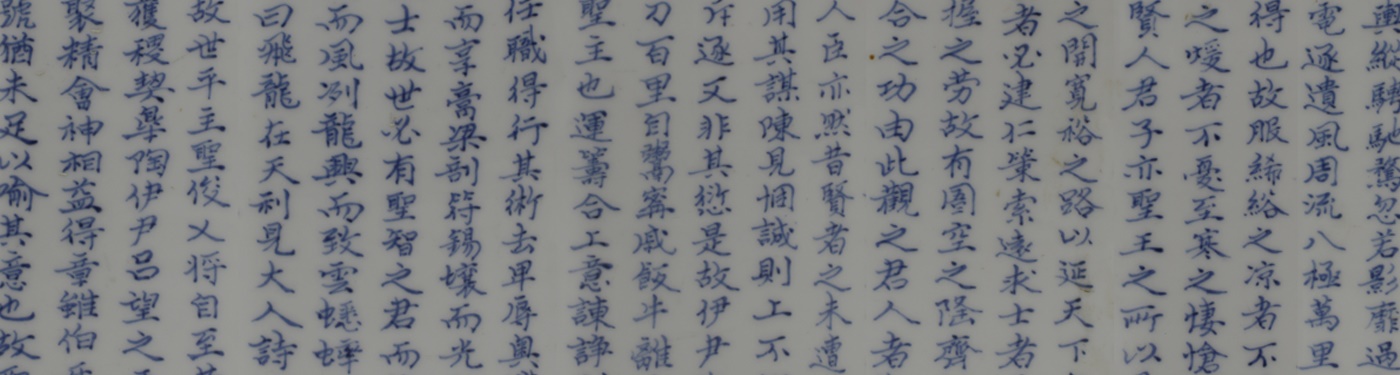 輿縱騁馳騖忽若影靡過
電逐遺風周流八極萬里
得也故服絺綌之凉者不
之煖者不憂至寒之悽愴
賢人君子亦聖王之所以
之開寬裕之路以延天下
者必建仁策索遠求士者
握之劳故有圄空之隆齊
合之功由此觀之君人者
人臣亦然昔賢者之未遭
用其謀陳見悃誠則上不
斥逐又非其愆是故伊尹
刀百里自鬻甯戚飯牛離
聖主也運籌合上意諫諍
任職得行其術去卑辱奥
而享膏粱剖符錫壤而光
士故世必有聖智之君而
而風冽龍興而致雲蟋蟀
曰飛龍在天利見大人詩
故世平主聖俊乂将自至
獲稷契皐陶伊尹呂望之
聚精會神相益得章雖伯
號猶未足以喻其意也故